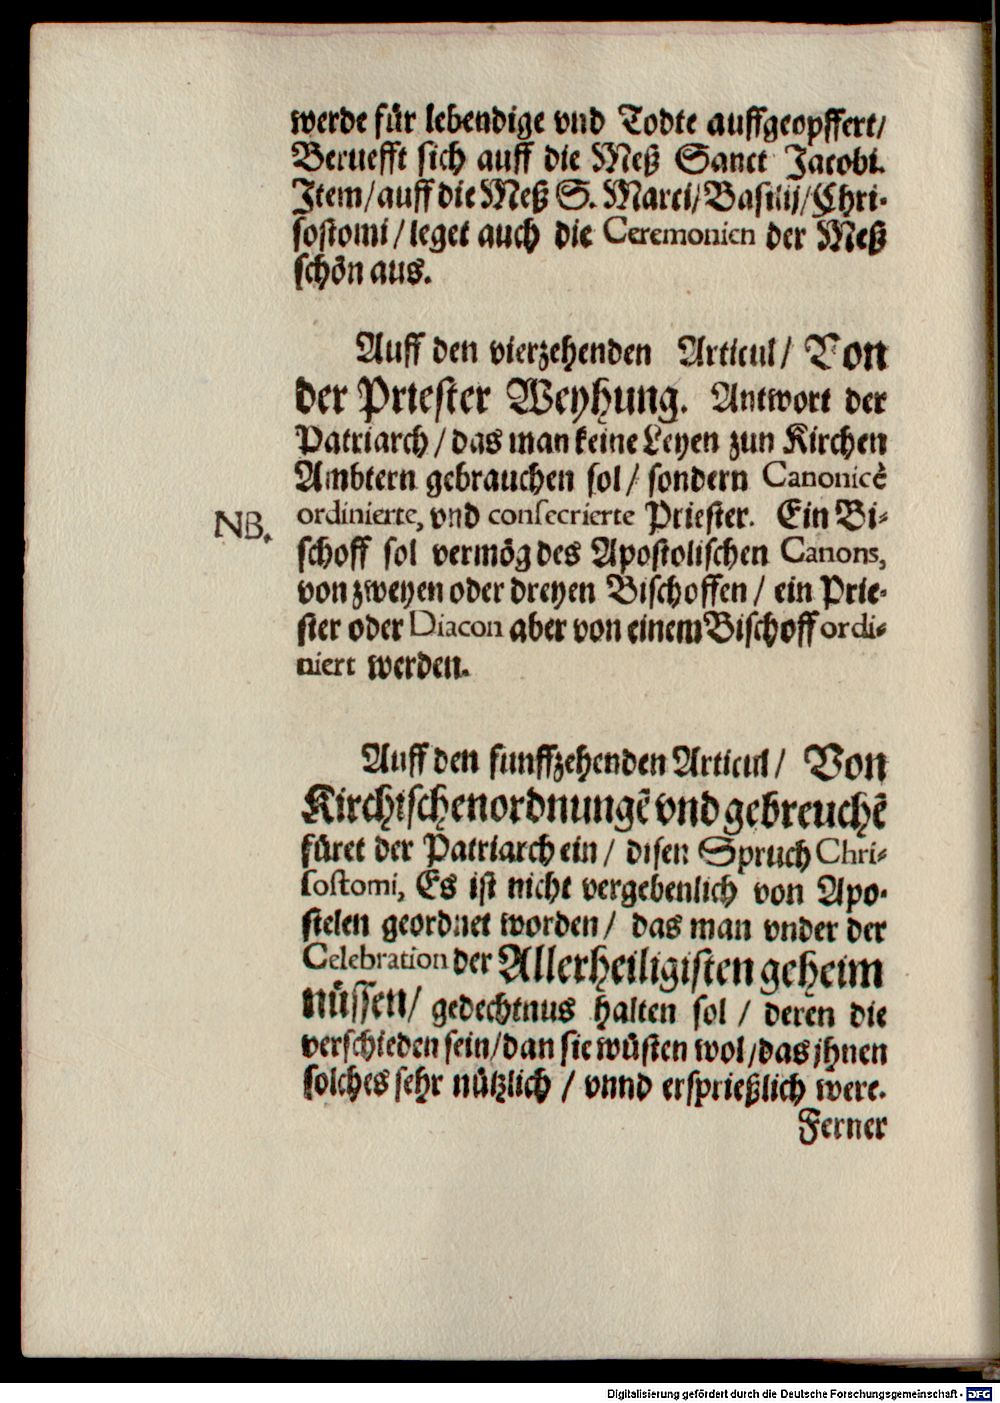 werde für lebendige vnd Todte auffgeopffert/
Beruefft sich auff die Meß Sanct Jacobi.
Item/auff die Meß S. Marci/Basilij/Chri-
sostomi/leget auch die Ceremonien der Meß
schön aus.
Auff den vierzehenden Articul/ Von
der Priester Weyhung. Antwort der
Patriarch/das man keine Leyen zun Kirchen
Ambtern gebrauchen sol/ sondern Canonicè
NB. ordinierte, vnd consecrierte Priester. Ein Bi-
schoff sol vermög des Apostolischen Canons,
von zweyen oder dreyen Bischoffen/ ein Prie-
ster oder Diacon aber von einem Bischoff ordi-
niert werden.
Auff den funffzehenden Articul/ Von
Kirchischenordnungē vnd gebreuchē
füret der Patriarch ein/ disen Spruch Chri-
sostomi, Es ist nicht vergebenlich von Apo-
stelen geordnet worden/ das man vnder der
Celebration der Allerheiligisten geheim
nüssen/ gedechtnus halten sol/ deren die
verschieden sein/dan sie wüsten wol/das jhnen
solches sehr nützlich/ vnnd ersprießlich were.
Ferner
Digitalisierung gefördert durch die Deutsche Forschungsgemeinschaft - DFG